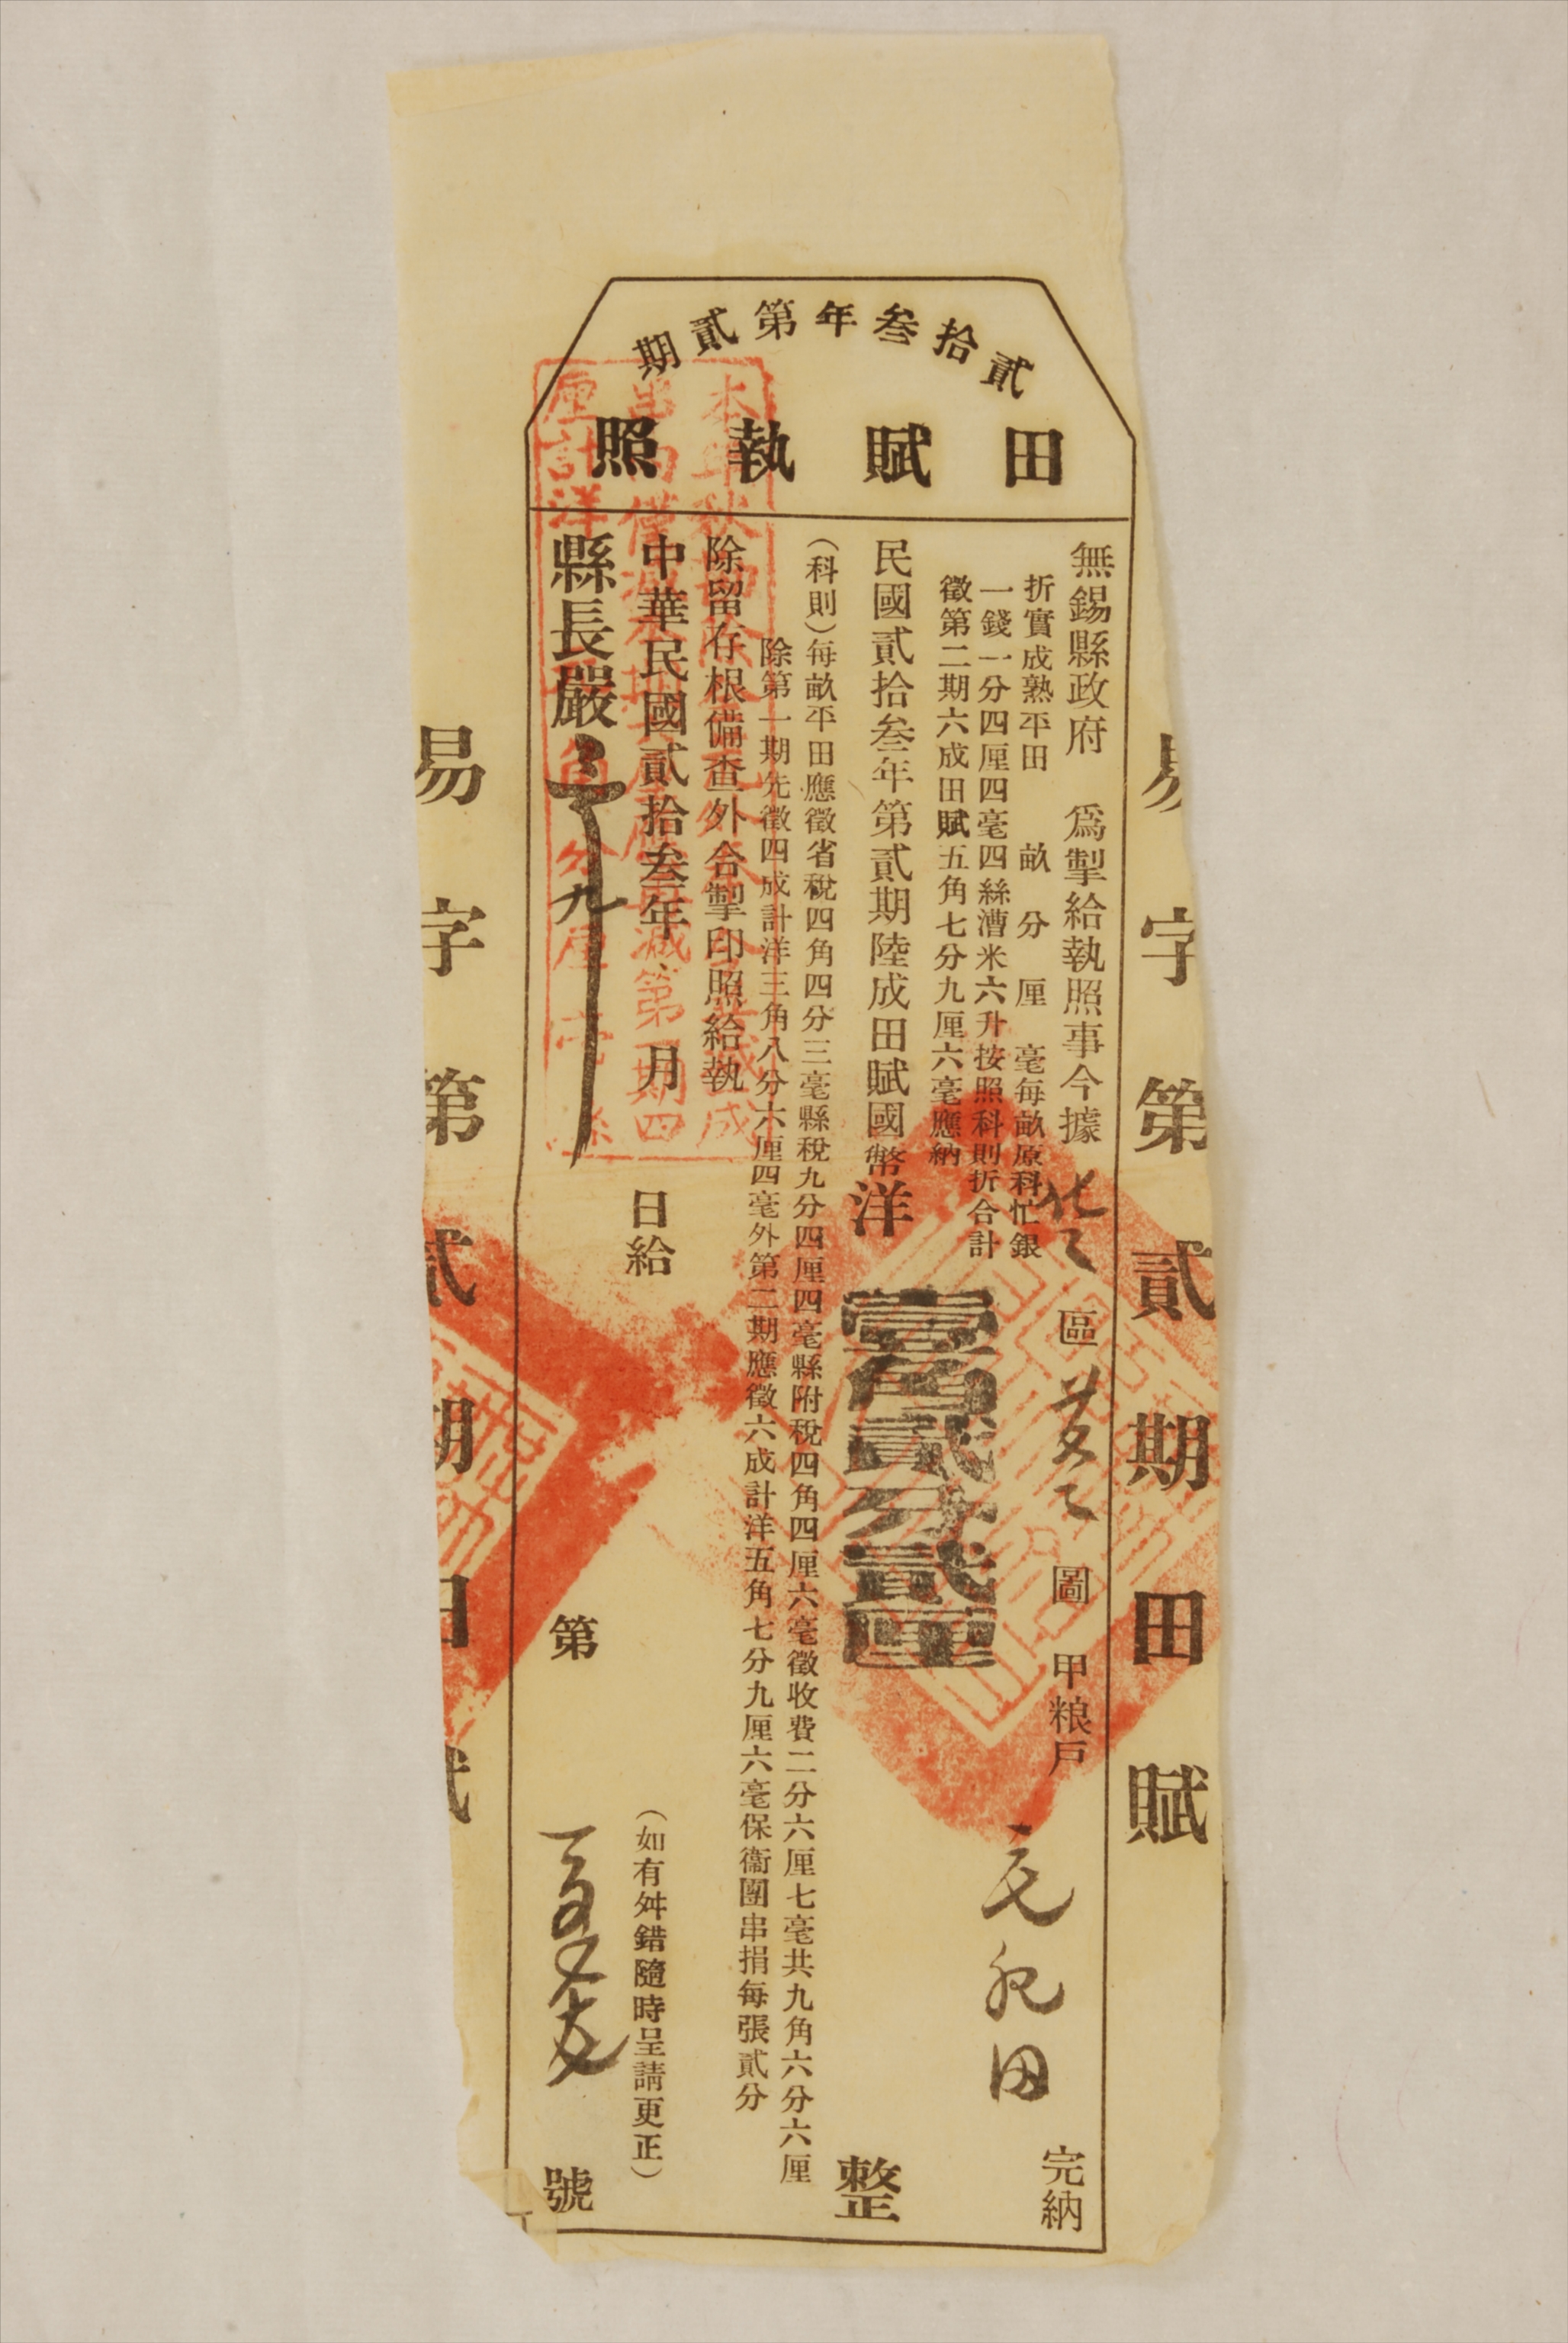 貳拾叁年第貳期
田賦執照
易字第貳期田賦
無錫縣政府　爲掣給執照事今據　區　圖　甲粮戶　田　完納
折實成熟平田　畝　分　厘　毫每畝原科忙銀
一錢一分四厘四毫四絲漕米六升按照科則折合計
徵第二期六成田賦五角七分九厘六毫應納
民國貳拾叁年第貳期陸成田賦國幣洋壹角貳分貳厘整
（科則）每畝平田應徵省稅四角四分三毫縣稅九分四厘四毫縣附稅四角四厘六毫徵收費二分六厘七毫共九角六分六厘
除第一期先徵四成計洋三角八分六厘四毫外第二期應徵六成計洋五角七分九厘六毫保衞團串捐每張貳分
除留存根備查外合掣印照給執
中華民國貳拾叁年　月　日給
（如有舛錯隨時呈請更正）
縣長嚴
第　號
易字第貳期田賦